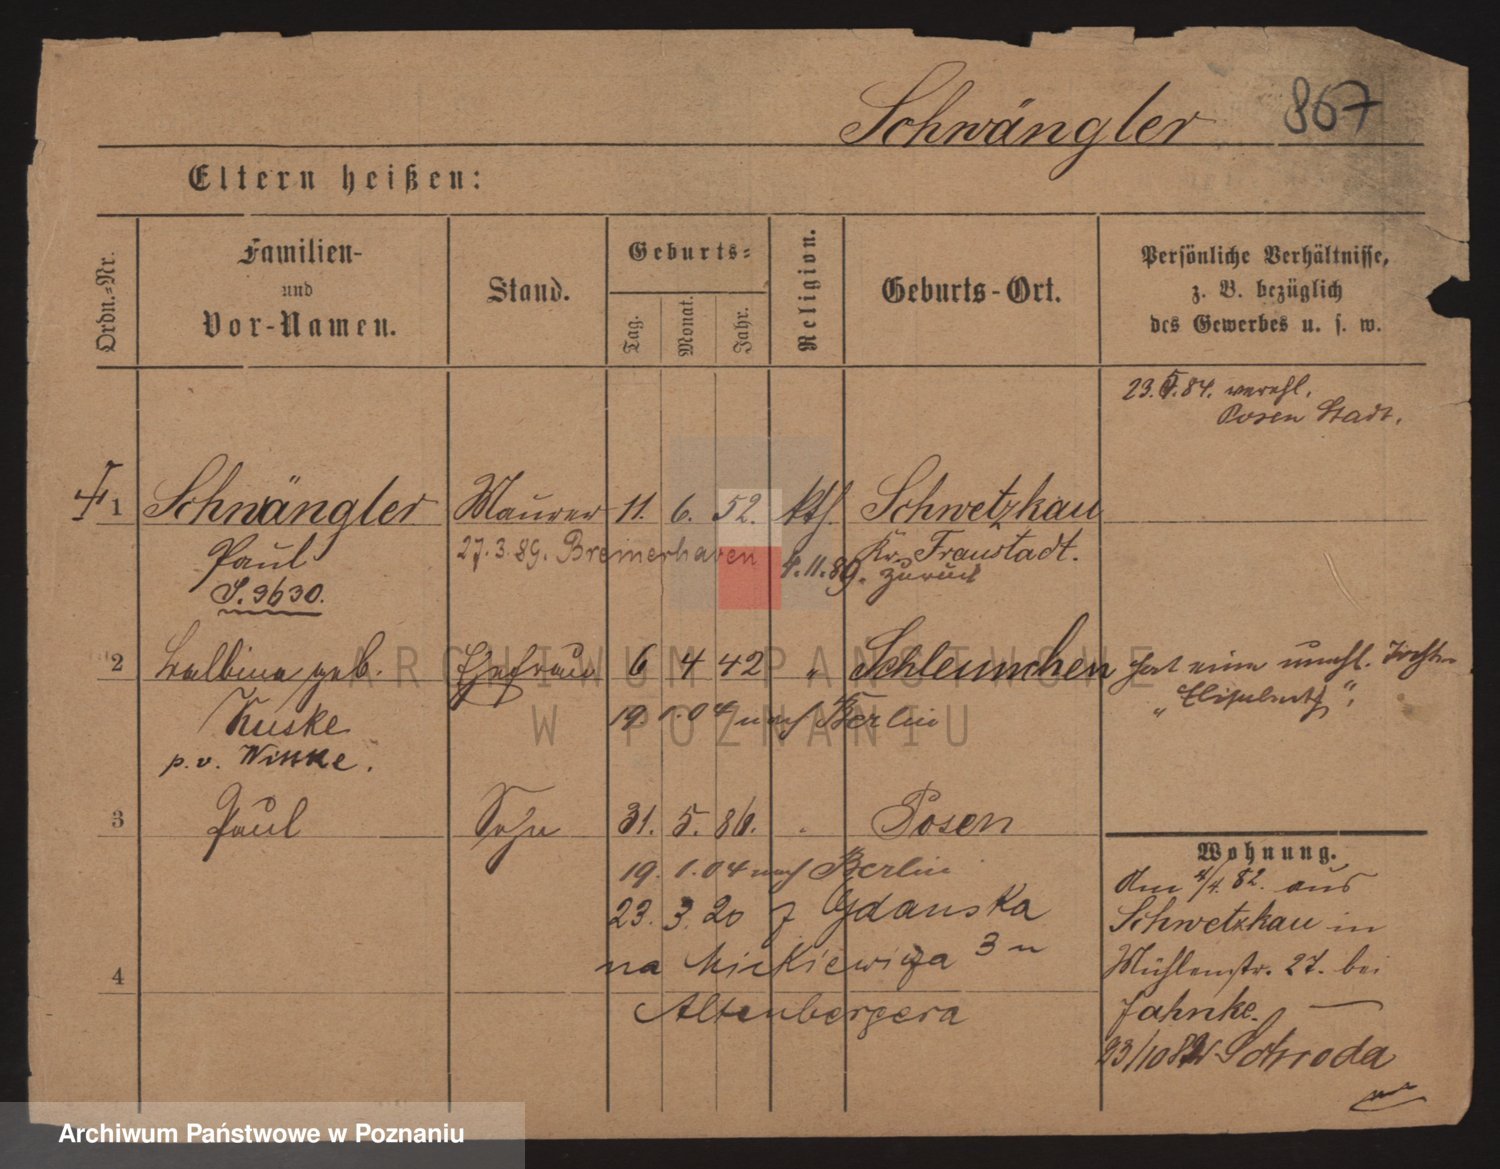 Schwängler 867
Eltern heißen:
Ordn.-Nr.
Familien-
und
Vor-Namen.
Stand.
Geburts-
Tag.
Monat.
Jahr.
Religion.
Geburts-Ort.
Persönliche Verhältnisse,
z. B. bezüglich
des Gewerbes u. s. w.
23. 84. verehl.
Posen Stadt.
1 Schwängler Maurer 11. 6. 52. kth. Schwetzkau
Paul 27.3.89. Bremerhaven Kr. Fraustadt.
.11.89. zurück
S. 3630.
2 Balbina geb. Ehefrau 6 4 42 " Schleunchen hat eine unehl. Tochter
"Elisabeth".
Kuske 19. 1.04 nach Berlin
p. v. Witke.
3 Paul Sohn 31. 5. 86. " Posen
19. 1.04 nach Berlin
23. 3. 20 z Gdanska
na Mickiewicza 3 u
4
Altenbergera
Wohnung.
Am 4/4. 82. aus
Schwetzkau in
Mühlenstr. 27. bei
Jahnke. —
23/10 82 Schroda
ARCHIWUM PAŃSTWOWE
W POZNANIU
Archiwum Państwowe w Poznaniu